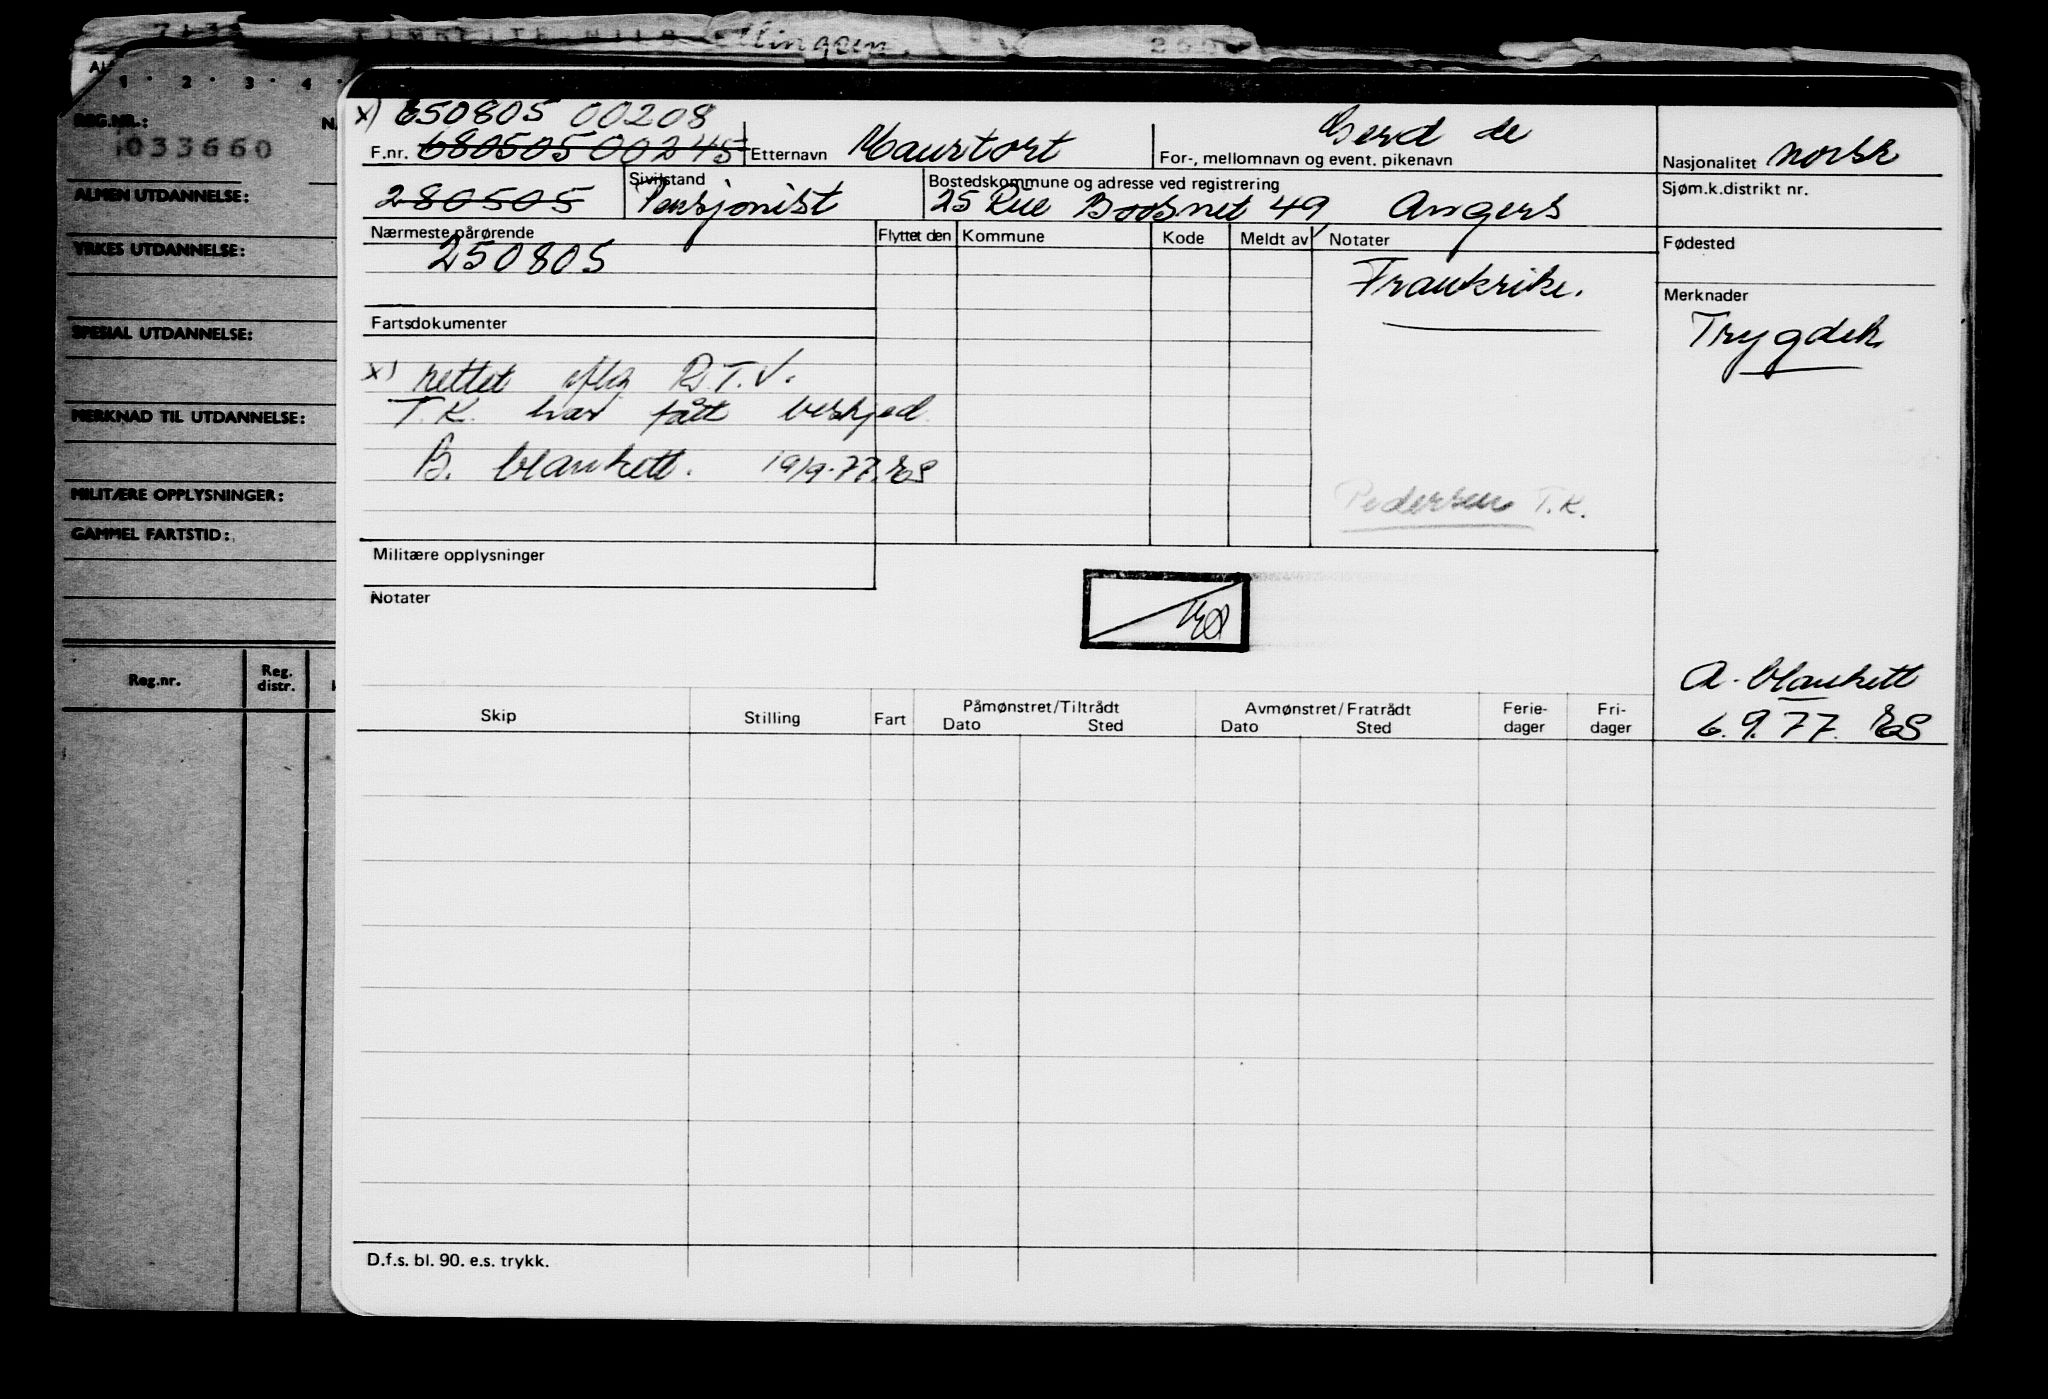 Ellingsen.
1 · 2 · 3 · 4 ·
REG.NR.:
033660
ALMEN UTDANNELSE:
YRKES UTDANNELSE:
SPESIAL UTDANNELSE:
MERKNAD TIL UTDANNELSE:
MILITÆRE OPPLYSNINGER:
GAMMEL FARTSTID:
Reg.nr.
Reg. distr.
x) 650805 00208
F.nr. 680505 00245 Etternavn Maurtort
Gerd de
For-, mellomnavn og event. pikenavn
Nasjonalitet norsk
280505
Sivilstand
Pensjonist
Bostedskommune og adresse ved registrering
25 Rue 49 Angers
Sjøm.k.distrikt nr.
Nærmeste pårørende
Flyttet den Kommune Kode Meldt av Notater
Fødested
250805
Frankrike.
Merknader
Trygdek
Fartsdokumenter
x) rettet iflg R.T.V.
T.K. har fått beskjed.
B. blankett. 19/9-77.
Pedersen T.K.
Militære opplysninger
Notater
A. blankett
6.9.77.
Skip Stilling Fart Påmønstret/Tiltrådt Avmønstret/Fratrådt Ferie-dager Fri-dager
Dato Sted Dato Sted
D.f.s. bl. 90. e.s. trykk.